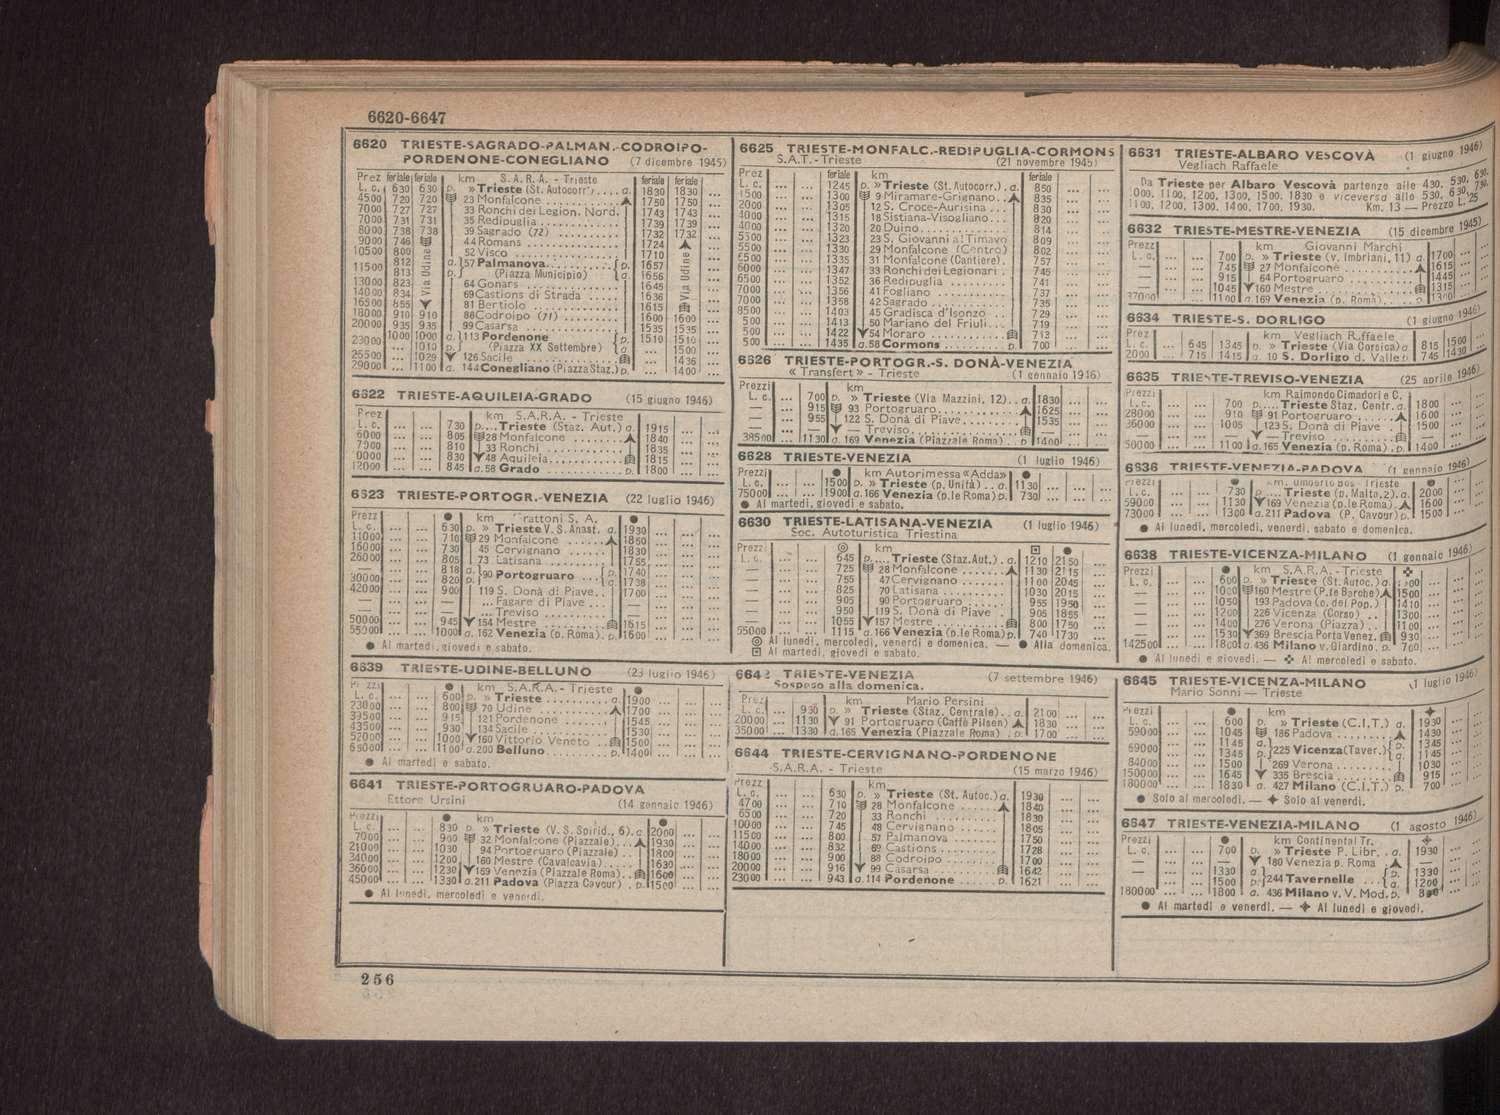 6620-6647
6620 TRIESTE-SAGRADO-PALMAN.-CODROIPO-
PORDENONE-CONEGLIANO (7 dicembre 1945)
Prez feriale feriale km S. A. R. A. - Trieste feriale feriale
L. c. 630 630 p. » Trieste (St. Autocorr.) .... a. 1830 1830 ...
4500 720 720 23 Monfalcone 1750 1750 ...
7000 727 727 33 Ronchi dei Legion. Nord. 1743 1743 ...
7000 731 731 35 Redipuglia 1739 1739 ...
8000 738 738 39 Sagrado (72) 1732 1732 ...
9000 746 44 Romans 1724 ...
10500 800 52 Visco 1710 ...
11500 812 a. 57 Palmanova p. 1657 ...
813 p. (Piazza Municipio) a. 1656 ...
13000 823 64 Gonars 1645 ...
14000 834 69 Castions di Strada 1636 ...
16500 855 81 Bertiolo 1615 ...
Via Udine
Via Udine
18000 910 910 88 Codroipo (71) 1600 1600 ...
20000 935 935 99 Casarsa 1535 1535 ...
23000 1000 1000 a. 113 Pordenone p. 1510 1510 ...
... 1010 p. (Piazza XX Settembre) a. ... 1500 ...
26500 ... 1029 126 Sacile ... 1436 ...
29000 ... 1100 a. 144 Conegliano (Piazza Staz.) p. ... 1400 ...
6622 TRIESTE-AQUILEIA-GRADO (15 giugno 1946)
Prez km S.A.R.A. - Trieste
L. c. ... ... 730 p. ... Trieste (Staz. Aut.) a. 1915 ... ...
6000 ... ... 805 28 Monfalcone 1840 ... ...
7900 ... ... 810 33 Ronchi 1835 ... ...
... ... 830 48 Aquileia 1815 ... ...
12000 ... ... 845 a. 58 Grado p. 1800 ... ...
6623 TRIESTE-PORTOGR.-VENEZIA (22 luglio 1946)
Prez ● km Frattoni S. A. ●
L. c. ... ... 630 p. » Trieste V. S. Anast. a. 1930 ... ...
11000 ... ... 710 29 Monfalcone 1850 ... ...
16000 ... ... 730 45 Cervignano 1830 ... ...
26000 ... ... 805 73 Latisana 1755 ... ...
— ... ... 818 a. 90 Portogruaro p. 1740 ... ...
30000 ... ... 820 p. a. 1738 ... ...
42000 ... ... 900 119 S. Donà di Piave 1700 ... ...
— ... ... — ... Fagare di Piave — ... ...
— ... ... — ... Treviso — ... ...
50000 ... ... 945 154 Mestre 1615 ... ...
55000 ... ... 1000 a. 162 Venezia (p. Roma) p. 1600 ... ...
● Al martedì, giovedì e sabato.
6639 TRIESTE-UDINE-BELLUNO (23 luglio 1946)
Prezzi ● km S.A.R.A. - Trieste ●
L. c. ... ... 600 p. » Trieste a. 1900 ... ...
23000 ... ... 800 70 Udine 1700 ... ...
39500 ... ... 915 121 Pordenone 1545 ... ...
43500 ... ... 930 134 Sacile 1530 ... ...
52000 ... ... 1000 160 Vittorio Veneto 1500 ... ...
65000 ... ... 1100 a. 200 Belluno p. 1400 ... ...
● Al martedì e sabato.
6641 TRIESTE-PORTOGRUARO-PADOVA
Ettore Ursini (14 gennaio 1946)
Prezzi ● km ●
L. c. ... ... 830 p. » Trieste (V. S. Spirid., 6). a. 2000 ... ...
7000 ... ... 900 32 Monfalcone (Piazzale) 1930 ... ...
21000 ... ... 1030 94 Portogruaro (Piazzale) 1800 ... ...
34000 ... ... 1200 160 Mestre (Cavalcavia) 1630 ... ...
36000 ... ... 1230 169 Venezia (Piazzale Roma) 1600 ... ...
45000 ... ... 1330 a. 211 Padova (Piazza Cavour) p. 1500 ... ...
● Al lunedì, mercoledì e venerdì.
6625 TRIESTE-MONFALC.-REDIPUGLIA-CORMONS
S.A.T. - Trieste (21 novembre 1945)
Prez feriale km feriale
L. c. 1245 p. » Trieste (St. Autocorr.) a. 850 ... ...
1500 1300 9 Miramare-Grignano 835 ... ...
2000 1305 12 S. Croce-Aurisina 830 ... ...
4000 1315 18 Sistiana-Visogliano 820 ... ...
4000 1320 20 Duino 814 ... ...
5500 1323 23 S. Giovanni al Timavo 809 ... ...
5500 1330 29 Monfalcone (Centro) 802 ... ...
1335 31 Monfalcone (Cantiere) 757 ... ...
6000 1347 33 Ronchi dei Legionari 745 ... ...
6500 1352 36 Redipuglia 741 ... ...
7000 1356 41 Fogliano 737 ... ...
7000 1358 42 Sagrado 735 ... ...
8500 1403 45 Gradisca d'Isonzo 729 ... ...
500 1413 50 Mariano del Friuli 719 ... ...
500 1422 54 Moraro 713 ... ...
500 1435 a. 58 Cormons p. 700 ... ...
6626 TRIESTE-PORTOGR.-S. DONÀ-VENEZIA
« Transfert » - Trieste (1 gennaio 1946)
Prezzi km
L. c. ... 700 p. » Trieste (Via Mazzini, 12) .. a. 1830 ... ...
— ... 915 93 Portogruaro 1625 ... ...
— ... 955 122 S. Donà di Piave 1535 ... ...
— ... — — Treviso — ... ...
38500 ... 1130 a. 169 Venezia (Piazzale Roma) .. p. 1400 ... ...
6628 TRIESTE-VENEZIA (1 luglio 1946)
Prezzi ● km Autorimessa «Adda» ●
L. c. ... ... 1500 p. » Trieste (p. Unità) .. a. 1130 ... ...
75000 ... ... 1900 a. 166 Venezia (p.le Roma) p. 730 ... ...
● Al martedì, giovedì e sabato.
6630 TRIESTE-LATISANA-VENEZIA (1 luglio 1946)
Soc. Autoturistica Triestina
Prezzi ◎ km ⊡ ●
L. c. ... ... 645 p. .... Trieste (Staz. Aut.) . a. 1210 2150 ...
... ... 725 28 Monfalcone 1130 2115 ...
... ... 755 47 Cervignano 1100 2045 ...
... ... 825 70 Latisana 1030 2015 ...
... ... 905 90 Portogruaro 955 1950 ...
... ... 950 119 S. Donà di Piave 905 1855 ...
— ... ... 1055 157 Mestre 800 1750 ...
55000 ... ... 1115 a. 166 Venezia (p.le Roma) p. 740 1730 ...
◎ Al lunedì, mercoledì, venerdì e domenica. — ● Alla domenica.
⊡ Al martedì, giovedì e sabato.
6642 TRIESTE-VENEZIA (7 settembre 1946)
Sospeso alla domenica.
Prez km Mario Persini
L. c. ... 930 p. » Trieste (Staz. Centrale) .. a. 2100 ... ...
20000 ... 1130 91 Portogruaro (Caffè Pilsen) 1830 ... ...
35000 ... 1330 a. 165 Venezia (Piazzale Roma) . p. 1700 ... ...
6644 TRIESTE-CERVIGNANO-PORDENONE
S.A.R.A. - Trieste (15 marzo 1946)
Prezzi km
L. c. ... ... 630 p. » Trieste (St. Autoc.) a. 1930 ... ...
4700 ... ... 710 28 Monfalcone 1840 ... ...
6500 ... ... 720 33 Ronchi 1830 ... ...
10000 ... ... 745 48 Cervignano 1805 ... ...
11500 ... ... 800 57 Palmanova 1750 ... ...
14000 ... ... 832 69 Castions 1728 ... ...
18000 ... ... 900 88 Codroipo 1700 ... ...
20000 ... ... 916 99 Casarsa 1642 ... ...
23000 ... ... 943 a. 114 Pordenone p. 1621 ... ...
6631 TRIESTE-ALBARO VESCOVÀ (1 giugno 1946)
Vegliach Raffaele
Da Trieste per Albaro Vescovà partenze alle 430, 530, 630,
1100, 1200, 1300, 1500, 1830 e viceversa alle 530, 630, 730,
1100, 1200, 1300, 1400, 1700, 1930. Km. 13 — Prezzo L. 25
6632 TRIESTE-MESTRE-VENEZIA (15 dicembre 1945)
Prezzi km Giovanni Marchi
L. c. ... ... 700 p. » Trieste (v. Imbriani, 11) a. 1700 ... ...
— ... ... 745 27 Monfalcone 1615 ... ...
— ... ... 915 64 Portogruaro 1445 ... ...
... ... 1045 160 Mestre 1315 ... ...
37000 ... ... 1100 a. 169 Venezia (p. Roma) p. 1300 ... ...
6634 TRIESTE-S. DORLIGO (1 giugno 1946)
Prezzi km Vegliach Raffaele
L. c. ... 645 1345 p. » Trieste (Via Coroica) a. 815 1500 ...
2000 ... 715 1415 a. 10 S. Dorligo d. Valle p. 745 1430 ...
6635 TRIESTE-TREVISO-VENEZIA (25 aprile 1946)
Prezzi km Raimondo Cimadori e C.
L. c. ... ... 700 p. .... Trieste Staz. Centr. a. 1800 ... ...
28000 ... ... 910 91 Portogruaro 1600 ... ...
36000 ... ... 1005 123 S. Donà di Piave 1500 ... ...
— ... ... — — Treviso — ... ...
50000 ... ... 1100 a. 165 Venezia (p. Roma) p. 1400 ... ...
6636 TRIESTE-VENEZIA-PADOVA (1 gennaio 1946)
Prezzi ● km. Umberto Bos - Trieste ●
L. c. ... ... 730 p. ... Trieste (p. Malta, 2). a. 2000 ... ...
59000 ... ... 1130 169 Venezia (p.le Roma) 1600 ... ...
73000 ... ... 1300 a. 211 Padova (P. Cavour) p. 1500 ... ...
● Al lunedì, mercoledì, venerdì, sabato e domenica.
6638 TRIESTE-VICENZA-MILANO (1 gennaio 1946)
Prezzi ● km S.A.R.A. - Trieste ✤
L. c. ... ... 600 p. » Trieste (St. Autoc.) a. ... ...
— ... ... 1000 160 Mestre (P. le Barche) 1500 ... ...
— ... ... 1050 193 Padova (p. dei Pop.) 1410 ... ...
— ... ... 1200 226 Vicenza (Corso) 1300 ... ...
— ... ... 1400 276 Verona (Piazza) 1100 ... ...
— ... ... 1530 369 Brescia Porta Venez. 930 ... ...
142500 ... ... 1800 a. 436 Milano v. Giardino. p. 700 ... ...
● Al lunedì e giovedì. — ✤ Al mercoledì e sabato.
6645 TRIESTE-VICENZA-MILANO (1 luglio 1946)
Mario Sonni — Trieste
Prezzi ● km ✦
L. c. ... ... 600 p. » Trieste (C.I.T.) a. 1930 ... ...
59000 ... ... 1045 186 Padova 1430 ... ...
69000 ... ... 1145 a. 225 Vicenza (Taver.) p. 1345 ... ...
... ... 1345 p. a. 1145 ... ...
84000 ... ... 1500 269 Verona 1030 ... ...
150000 ... ... 1645 335 Brescia 915 ... ...
180000 ... ... 1830 a. 427 Milano (C.I.T.) p. 700 ... ...
● Solo al mercoledì. — ✦ Solo al venerdì.
6647 TRIESTE-VENEZIA-MILANO (1 agosto 1946)
Prezzi ● km Continental Tr. ✦
L. c. ... ... 700 p. » Trieste P. Libr. .. a. 1930 ... ...
— ... ... — 180 Venezia p. Roma — ... ...
— ... ... 1330 a. 244 Tavernelle p. 1330 ... ...
— ... ... 1500 p. a. 1200 ... ...
180000 ... ... 1800 a. 436 Milano v. V. Mod. p. 800 ... ...
● Al martedì e venerdì. — ✦ Al lunedì e giovedì.
256